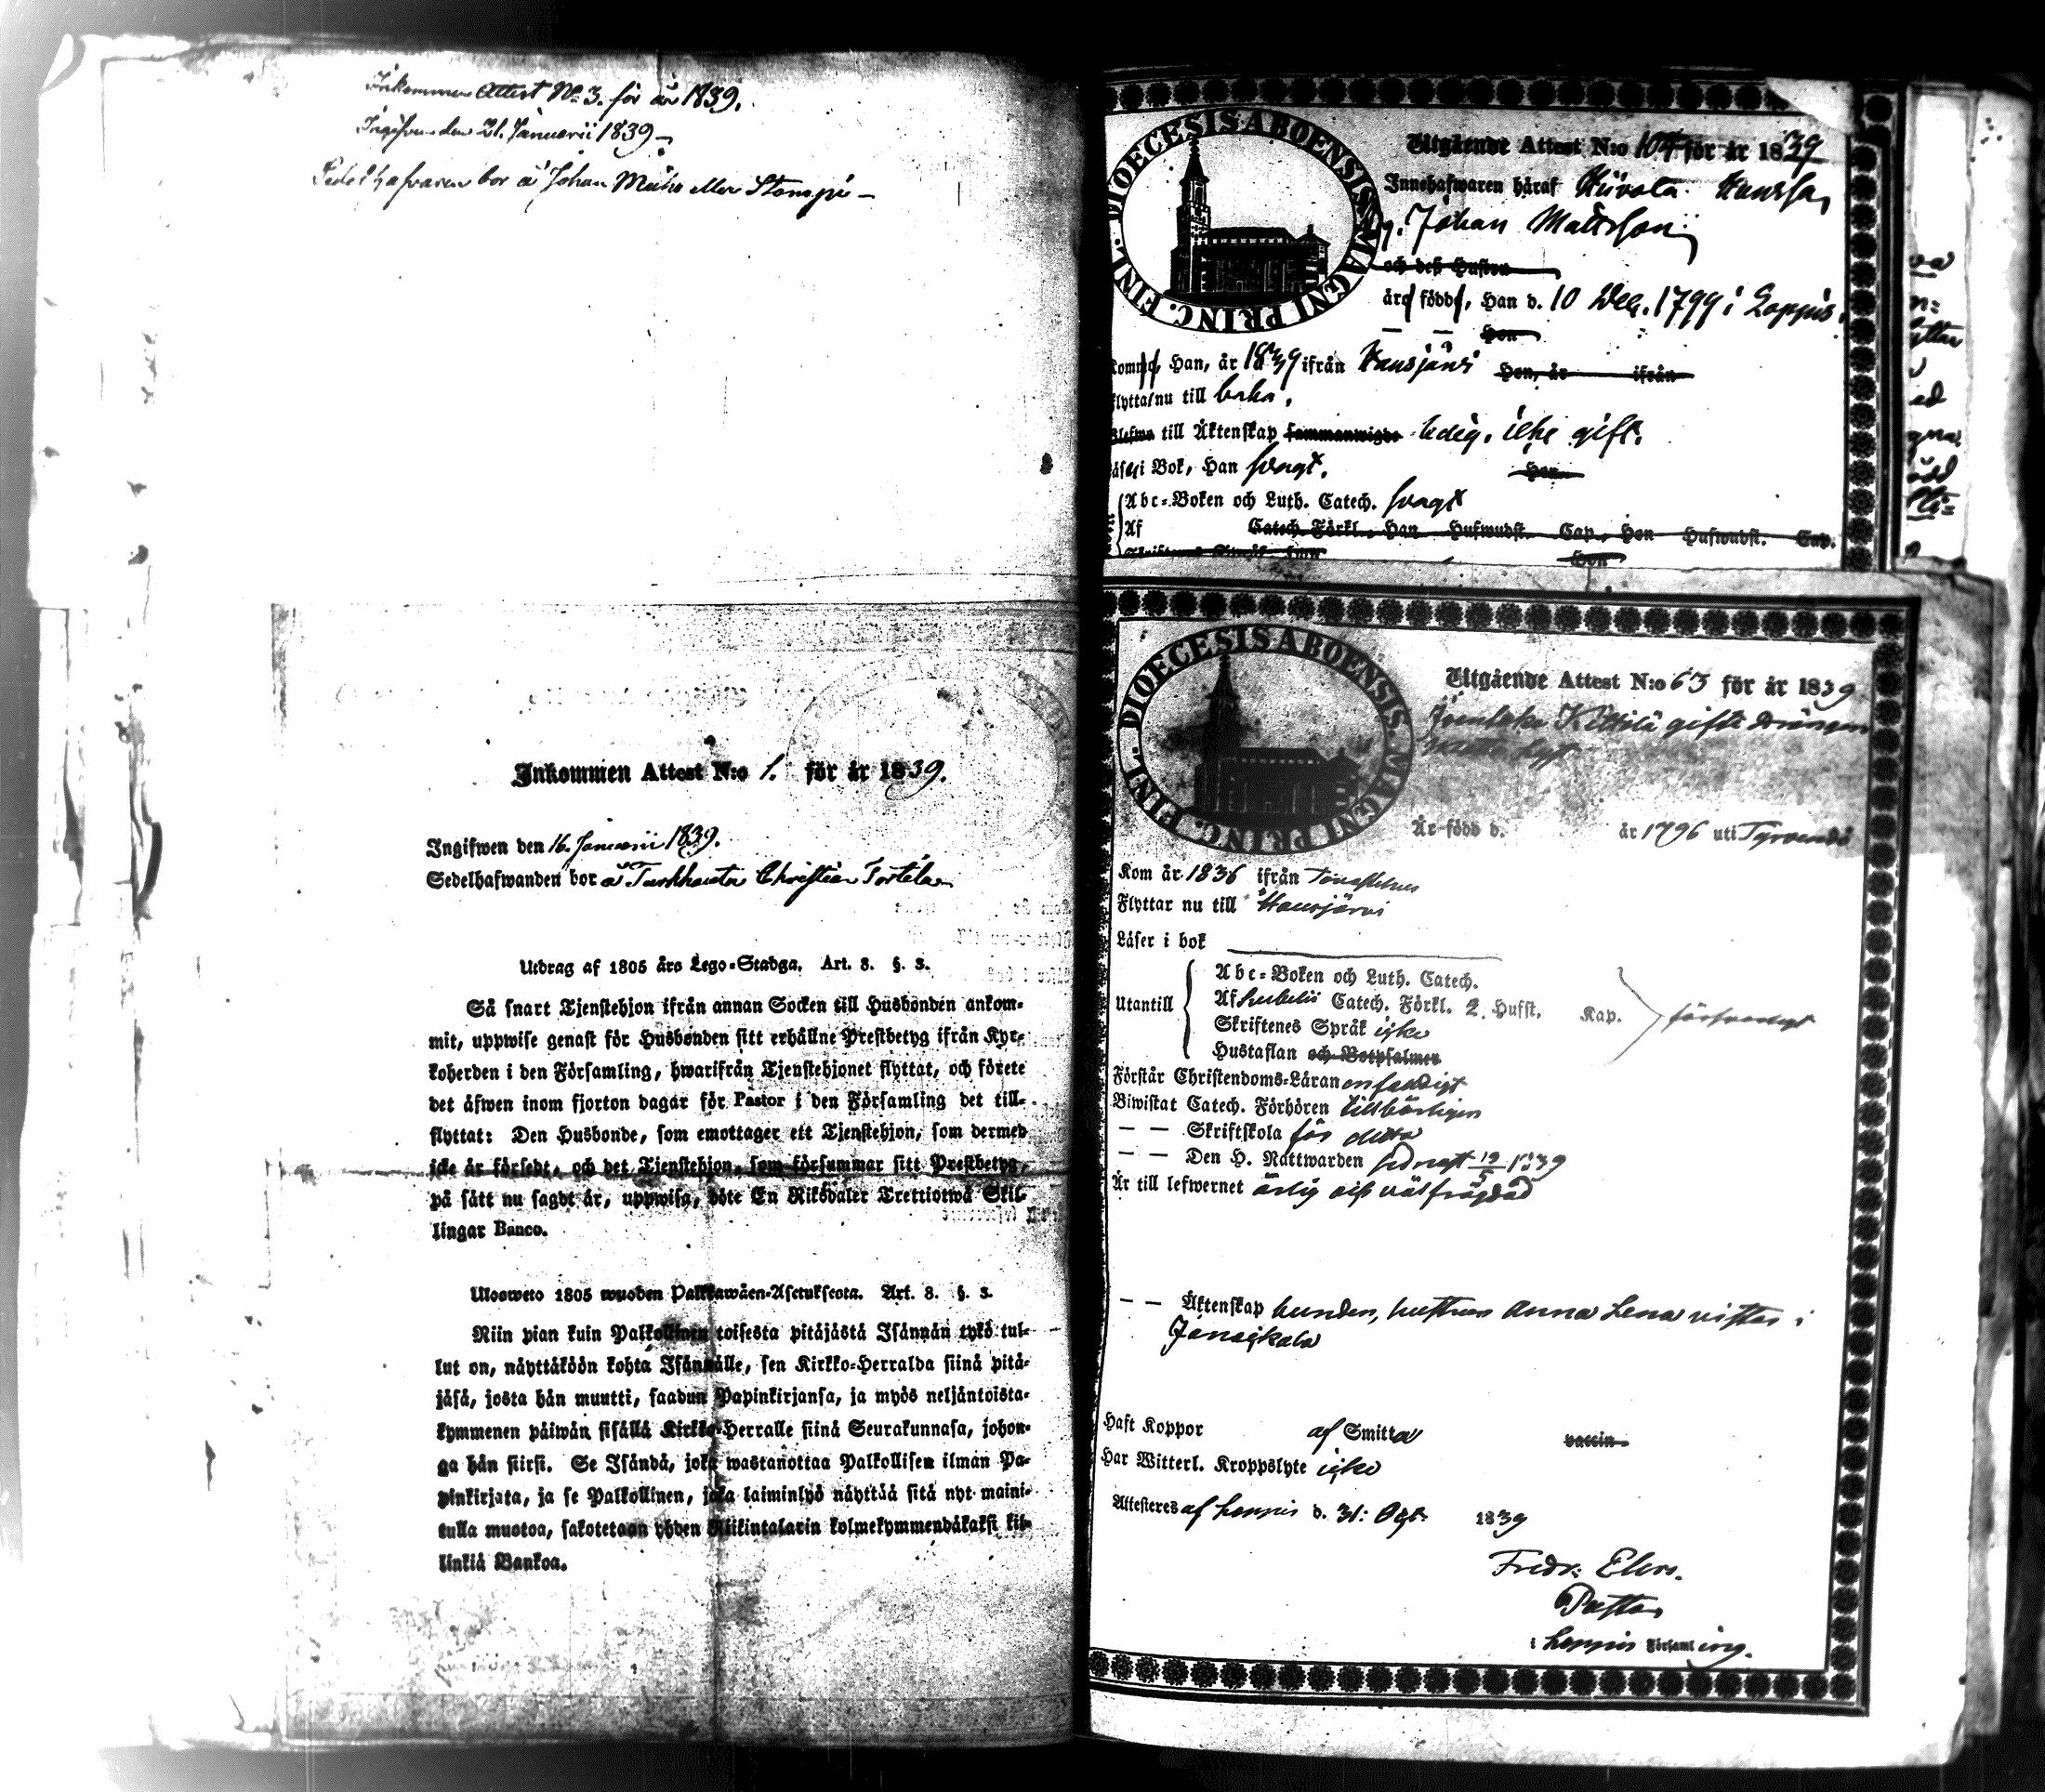 Inkommen Attest No 3. för år 1839.
Ingifven den 21. Januarii 1839
bor å Johan
Inkommen Attest N:o 1. för år 1839.
Ingifwen den 16. Januarii 1839.
Sedelhafwanden bor å Turkhauta Christian
Utdrag af 1805 års Lego-Stadga. Art. 8. §. 3.
Så snart Tjenstehjon ifrån annan Socken till Husbonden ankom-
mit, uppwise genast för Husbonden sitt erhållne Prestbetyg ifrån Kyr-
koherden i den Församling, hwarifrån Tjenstehjonet flyttat, och förete
det äfwen inom fjorton dagar för Pastor i den Församling det till-
flyttat: Den Husbonde, som emottager ett Tjenstehjon, som dermed
icke är försedt, och det Tjenstehjon, som försummar sitt Prestbetyg,
på sätt nu sagdt är, uppwisa, böte En Riksdaler Trettiotwå Skil-
lingar Banco.
Ulosweto 1805 wuoden Palkkawäen-Asetuksesta. Art. 8. §. 3.
Niin pian kuin Palkollinen toisesta pitäjästä Isännän tykö tul-
lut on, näyttäköön kohta Isännälle, sen Kirkko-Herralda siinä pitä-
jäsä, josta hän muutti, saadun Papinkirjansa, ja myös neljäntoista-
kymmenen päiwän sisällä Kirkko-Herralle siinä Seurakunnasa, johon-
ga hän siirsi. Se Isändä, joka wastanottaa Palkollisen ilman Pa-
pinkirjata, ja se Palkollinen, joka laiminlyö näyttää sitä nyt maini-
tulla muotoa, sakotetaan yhden Riikintalarin kolmekymmendäkaksi kil-
linkiä Bankoa.
DIOECESIS ABOENSIS. MAGNI PRINC. FINL.
Utgående Attest N:o 104 för år 1839
Innehafwaren häraf
Johan Mattsson
och deß Hustru
äro födde, Han d. 10 Dec. 1799 i Loppis.
Hon
Han, år 1839 ifrån Hausjärvi Hon, år ifrån
nu till
till Äktenskap sammanwigde ledig, icke gift.
i Bok, Han svagt. Hon
Abc-Boken och Luth. Catech. svagt
Af Catech. Förkl., Han Hufwudst. Cap., Hon Hufwudst. Cap.
Hon
DIOECESIS ABOENSIS. MAGNI PRINC. FINL.
Utgående Attest N:o 63 för år 1839
gifte drängen
Är född d. år 1796 uti
Kom år 1836 ifrån
Flyttar nu till Hausjärvi
Läser i bok
Utantill
Abc-Boken och Luth. Catech.
Af Catech. Förkl. 2. Hufst. Kap.
Skriftenes Språk icke
Hustaflan och Botpsalmen
försvarligt
Förstår Christendoms-Läran enfaldigt
Biwistat Catech. Förhören tillbörligen
— — Skriftskola
— — Den H. Nattwarden sednast 19/5 1839
Är till lefwernet ärlig och välfrägdad
— — Äktenskap bunden, hustrun Anna Lena vistas i
Janakkala
Haft Koppor af Smitta vaccin
Har Witterl. Kroppslyte icke
Attesteres af Loppis d. 31: 1839
Fredr: Elers.
Pastor
i Loppis Församling.